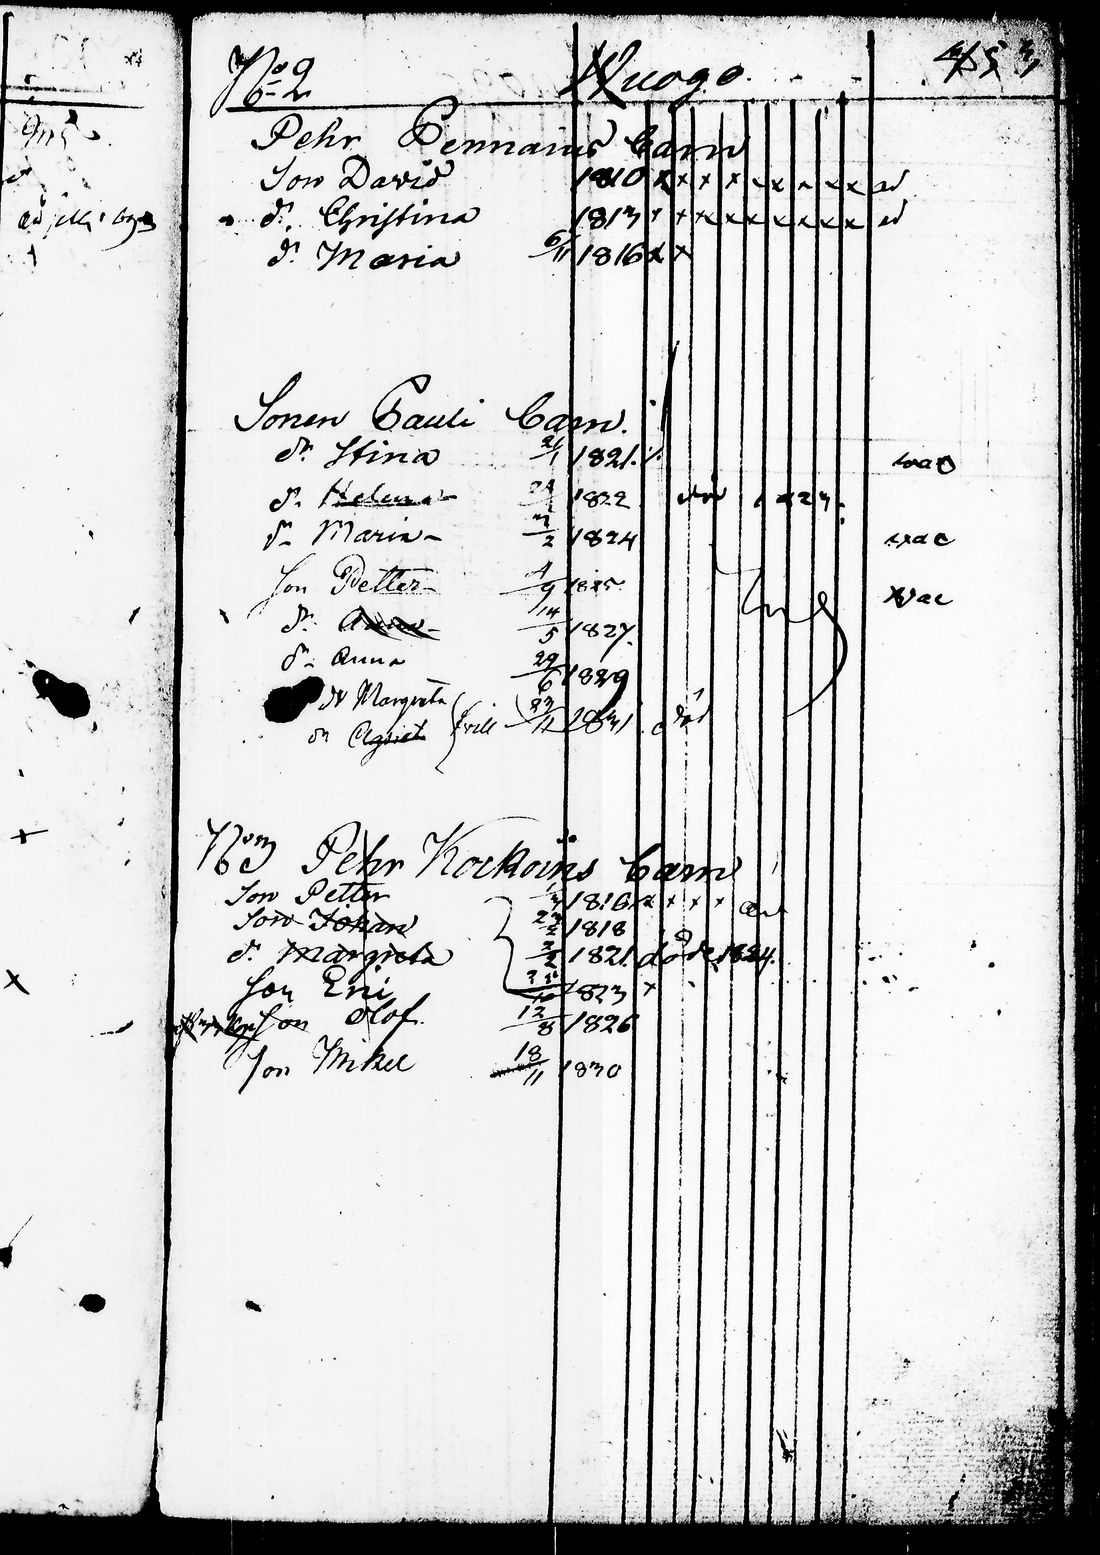 No 2 Wuogo. 453
Pehr Pennains Barn
Son David 1810 x x x x x x x x x ad
dr. Christina 1813 x x x x x x x x x ad
dr Maria 6/11 1816 x x
Sonen Pauli Barn.
dr Stina 21/1 1821.
dr. Helena 1822 död 1823.
dr Maria 3/2 1824 vac
Son Petter 1825 Vac
dr. Anna 14/5 1827.
dr Anna 29/6 1829
dr Margreta
dr Agnet tvill 23/11 1831. död
No 3 Pehr Kockoins Barn
Son Petter 1816 x x x x
Son Johan 1818
dr Margreta 2/2 1821. döde 1824.
Son Eric 1823 x
Son Olof. 12/8 1826
Son Mikel 18/11 1830